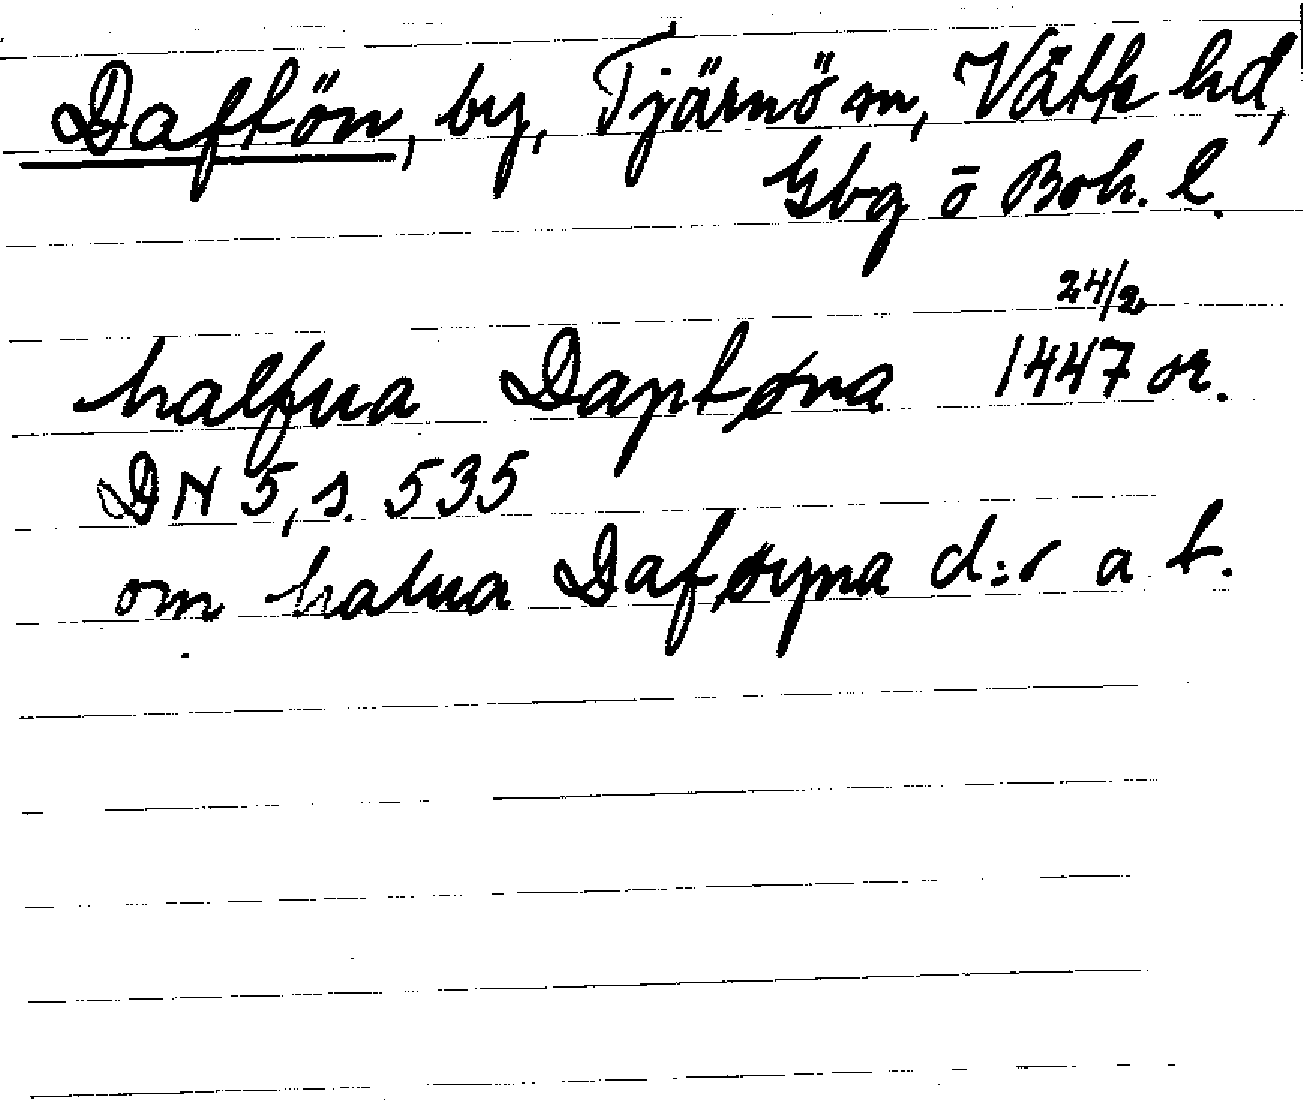 Daftön, by, Tjärnö sn, Vätte hd,
Gbg o Boh. l.
24/2
halfua Daptøna 1447 or.
DN 5, s. 535
om halua Daføyna d:r a t.